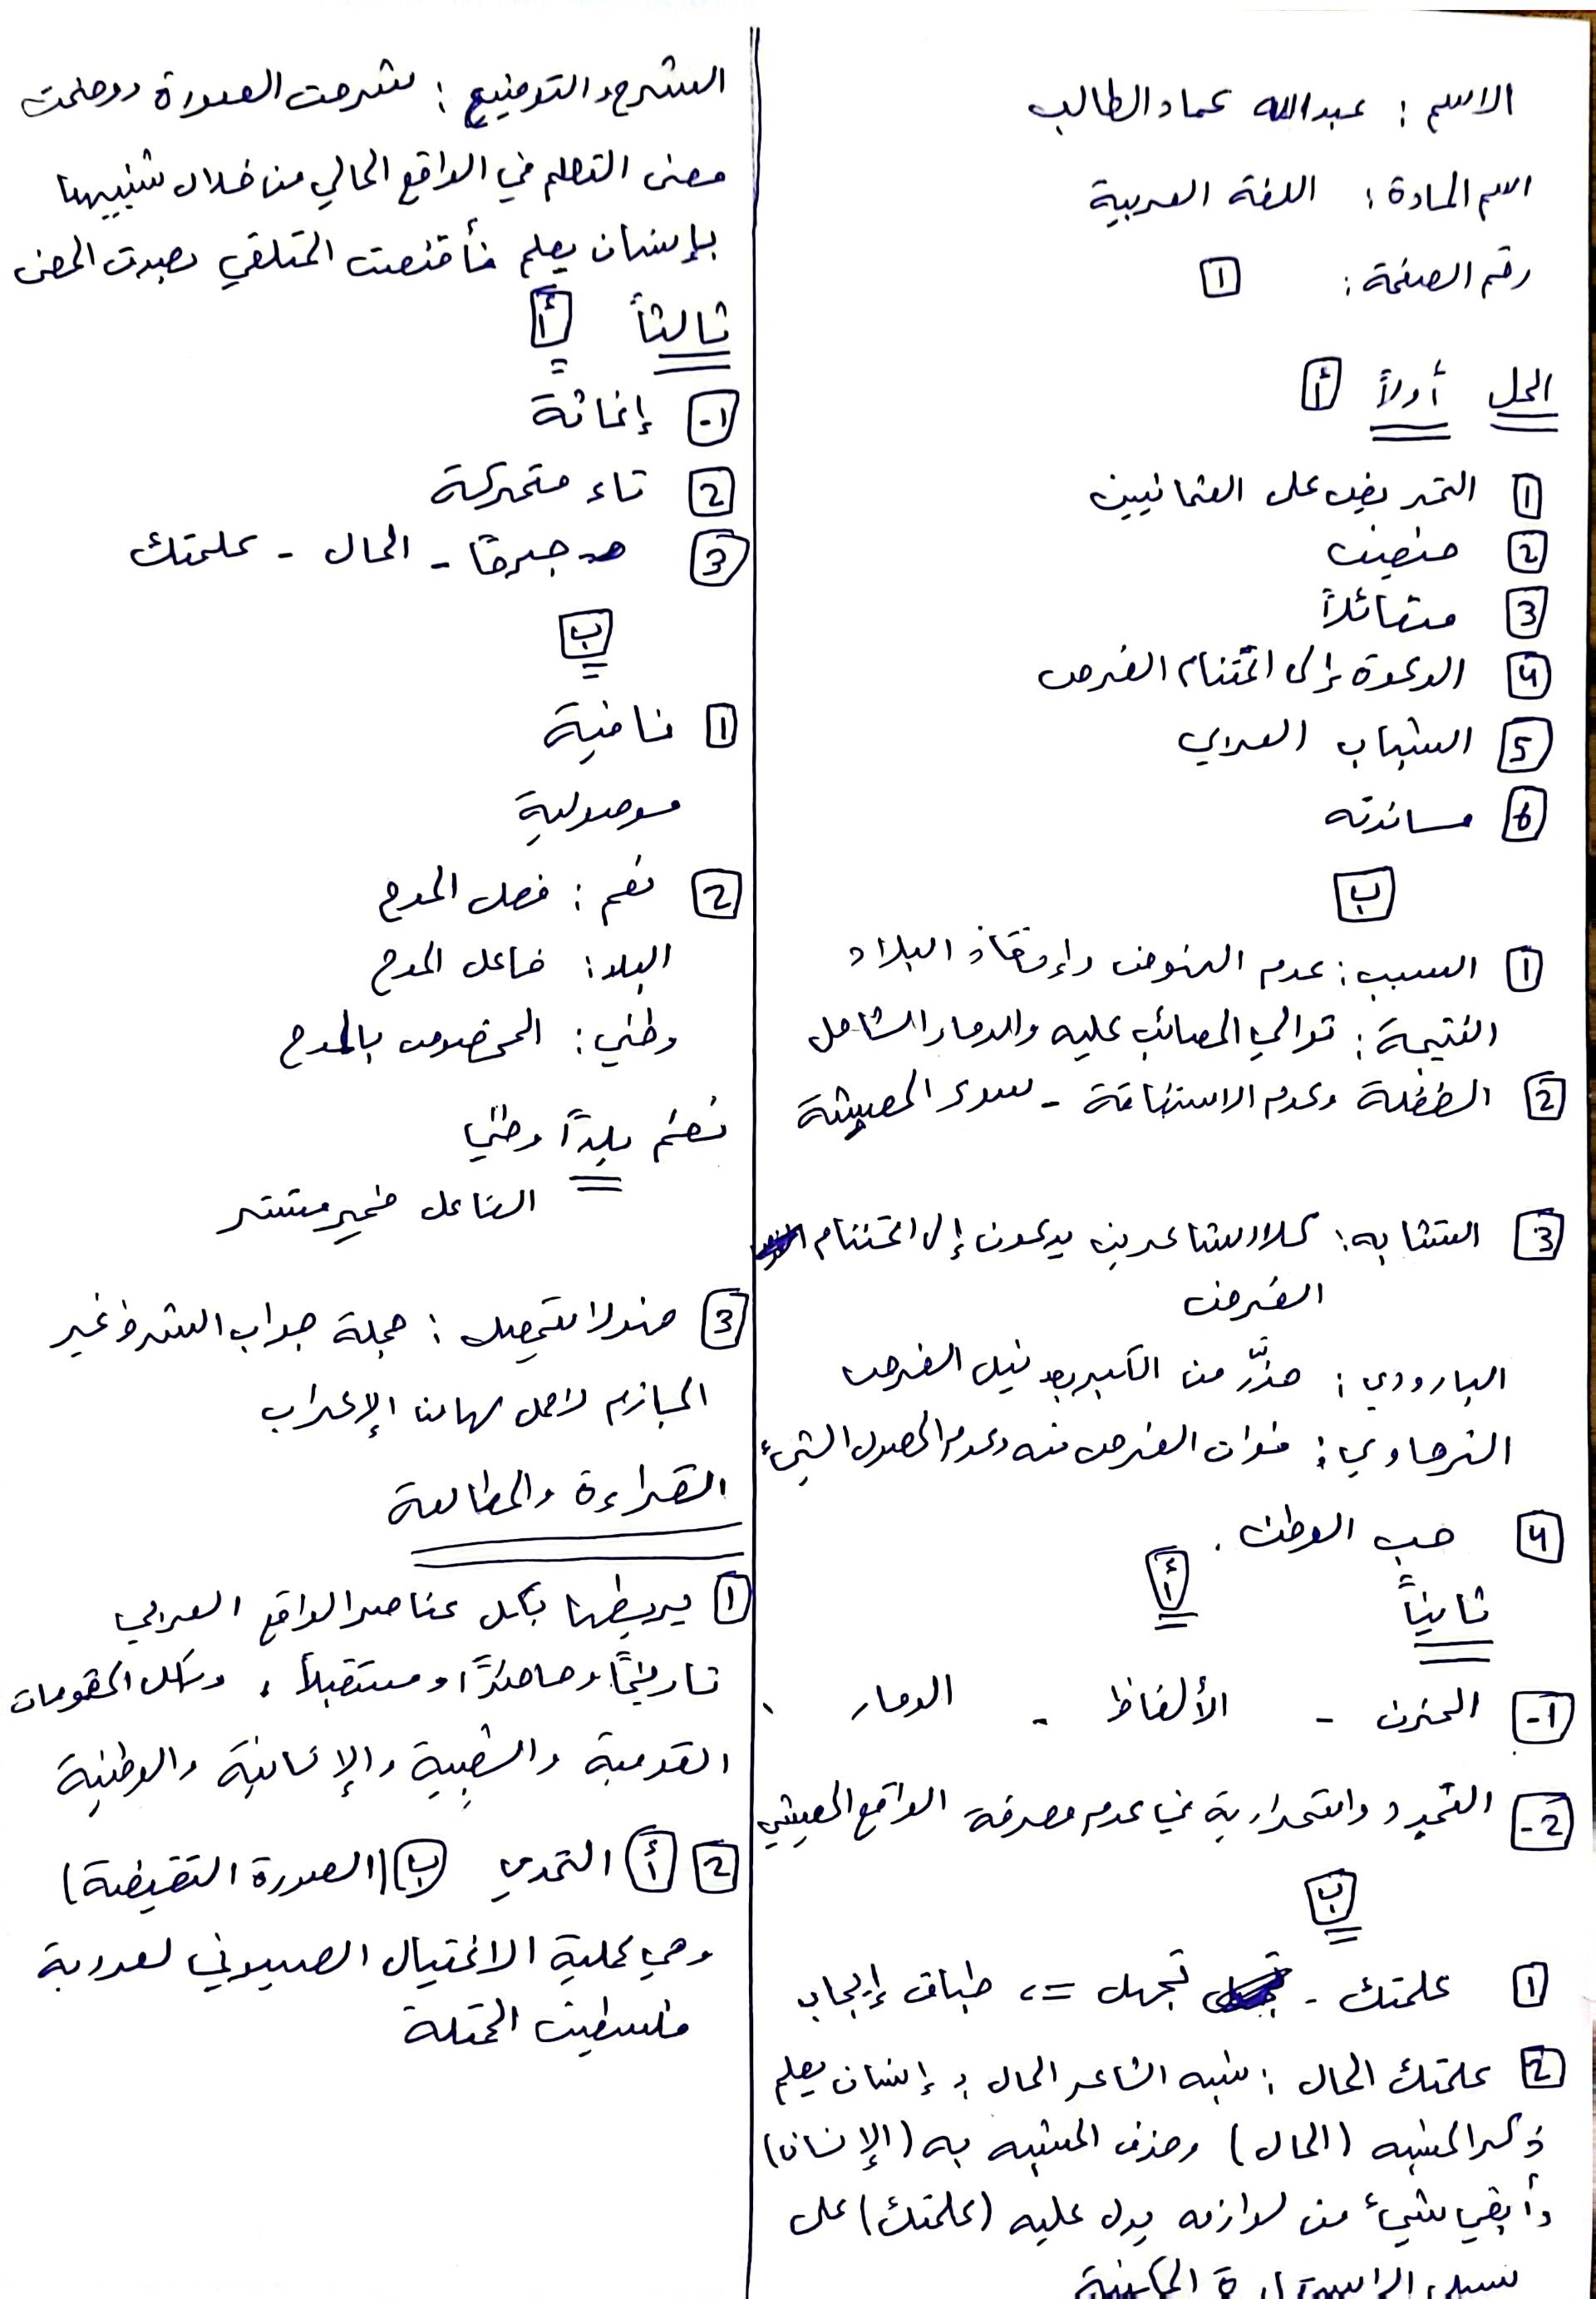 الاسم : عبدالله عماد الطالب
اسم المادة : اللغة العربية
رقم الصفحة : 1
الحل أولاً أ
1 التحريض على العثمانيين
2 منصف
3 متفائلاً
4 الدعوة إلى اغتنام الفرص
5 الشباب العربي
6 مساندته
ب
1 السبب : عدم النهوض وإنقاذ البلاد
النتيجة : توالي المصائب عليه والدمار الشامل
2 الغفلة وعدم الاستفاقة - سوء المعيشة
3 التشابه : كلا الشاعرين يدعون إلى اغتنام
الفرص
البارودي : حذّر من الكبر بعد نيل الفرص
الزهاوي : فوات الفرص منه وعدم الحصول الشيء
4 حب الوطن .
ثانياً أ
1- الحزن - الألفاظ - الدمار
2- التجدد والاستمرارية في عدم معرفة الواقع المعيشي
ب
1 علمتك - تجهل => طباق إيجاب
2 علمتك الحال : شبه الشاعر الحال بـ إنسان يعلم
ذكر المشبه (الحال) وحذف المشبه به (الإنسان)
وأبقي شيء من لوازمه يدل عليه (علمتك) على
سبيل الاستعارة المكنية
الشرح والتوضيح : شرحت الصورة ووضحت
معنى التعلم في الواقع الحالي من خلال تشبيهها
بإنسان يعلم فأقنعت المتلقي بصدق المعنى
ثالثاً أ
1- إغاثة
2 تاء متحركة
3 جبرها - الحال - علمتك
ب
1 نافية
موصولية
2 نعم : فعل المدح
البلد : فاعل المدح
وطني : المخصوص بالمدح
نعم بلداً وطني
الفاعل ضمير مستتر
3 : جملة جواب الشرط غير
الجازم لا محل لها من الإعراب
القراءة والمطالعة
1 يربطها بكل عناصر الواقع العربي
تاريخاً وحاضراً ومستقبلاً ، وبكل المقومات
القومية والشعبية والإنسانية والوطنية
2 أ التحدي ب (الصورة النقيضة)
وهي عملية الاغتيال الصهيوني لعروبة
فلسطين المحتلة